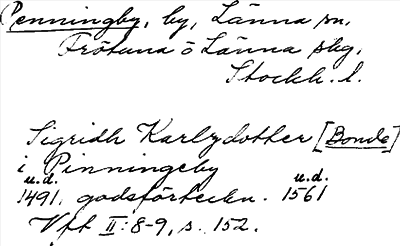 Penningby, by, Länna sn,
Frötuna o Länna skg,
Stockh. l.
Sigridh Karlzdotther [Bonde]
i Pinningeby
u.d. u.d.
1491, godsförteckn. 1561
Vft II:8-9, s. 152.